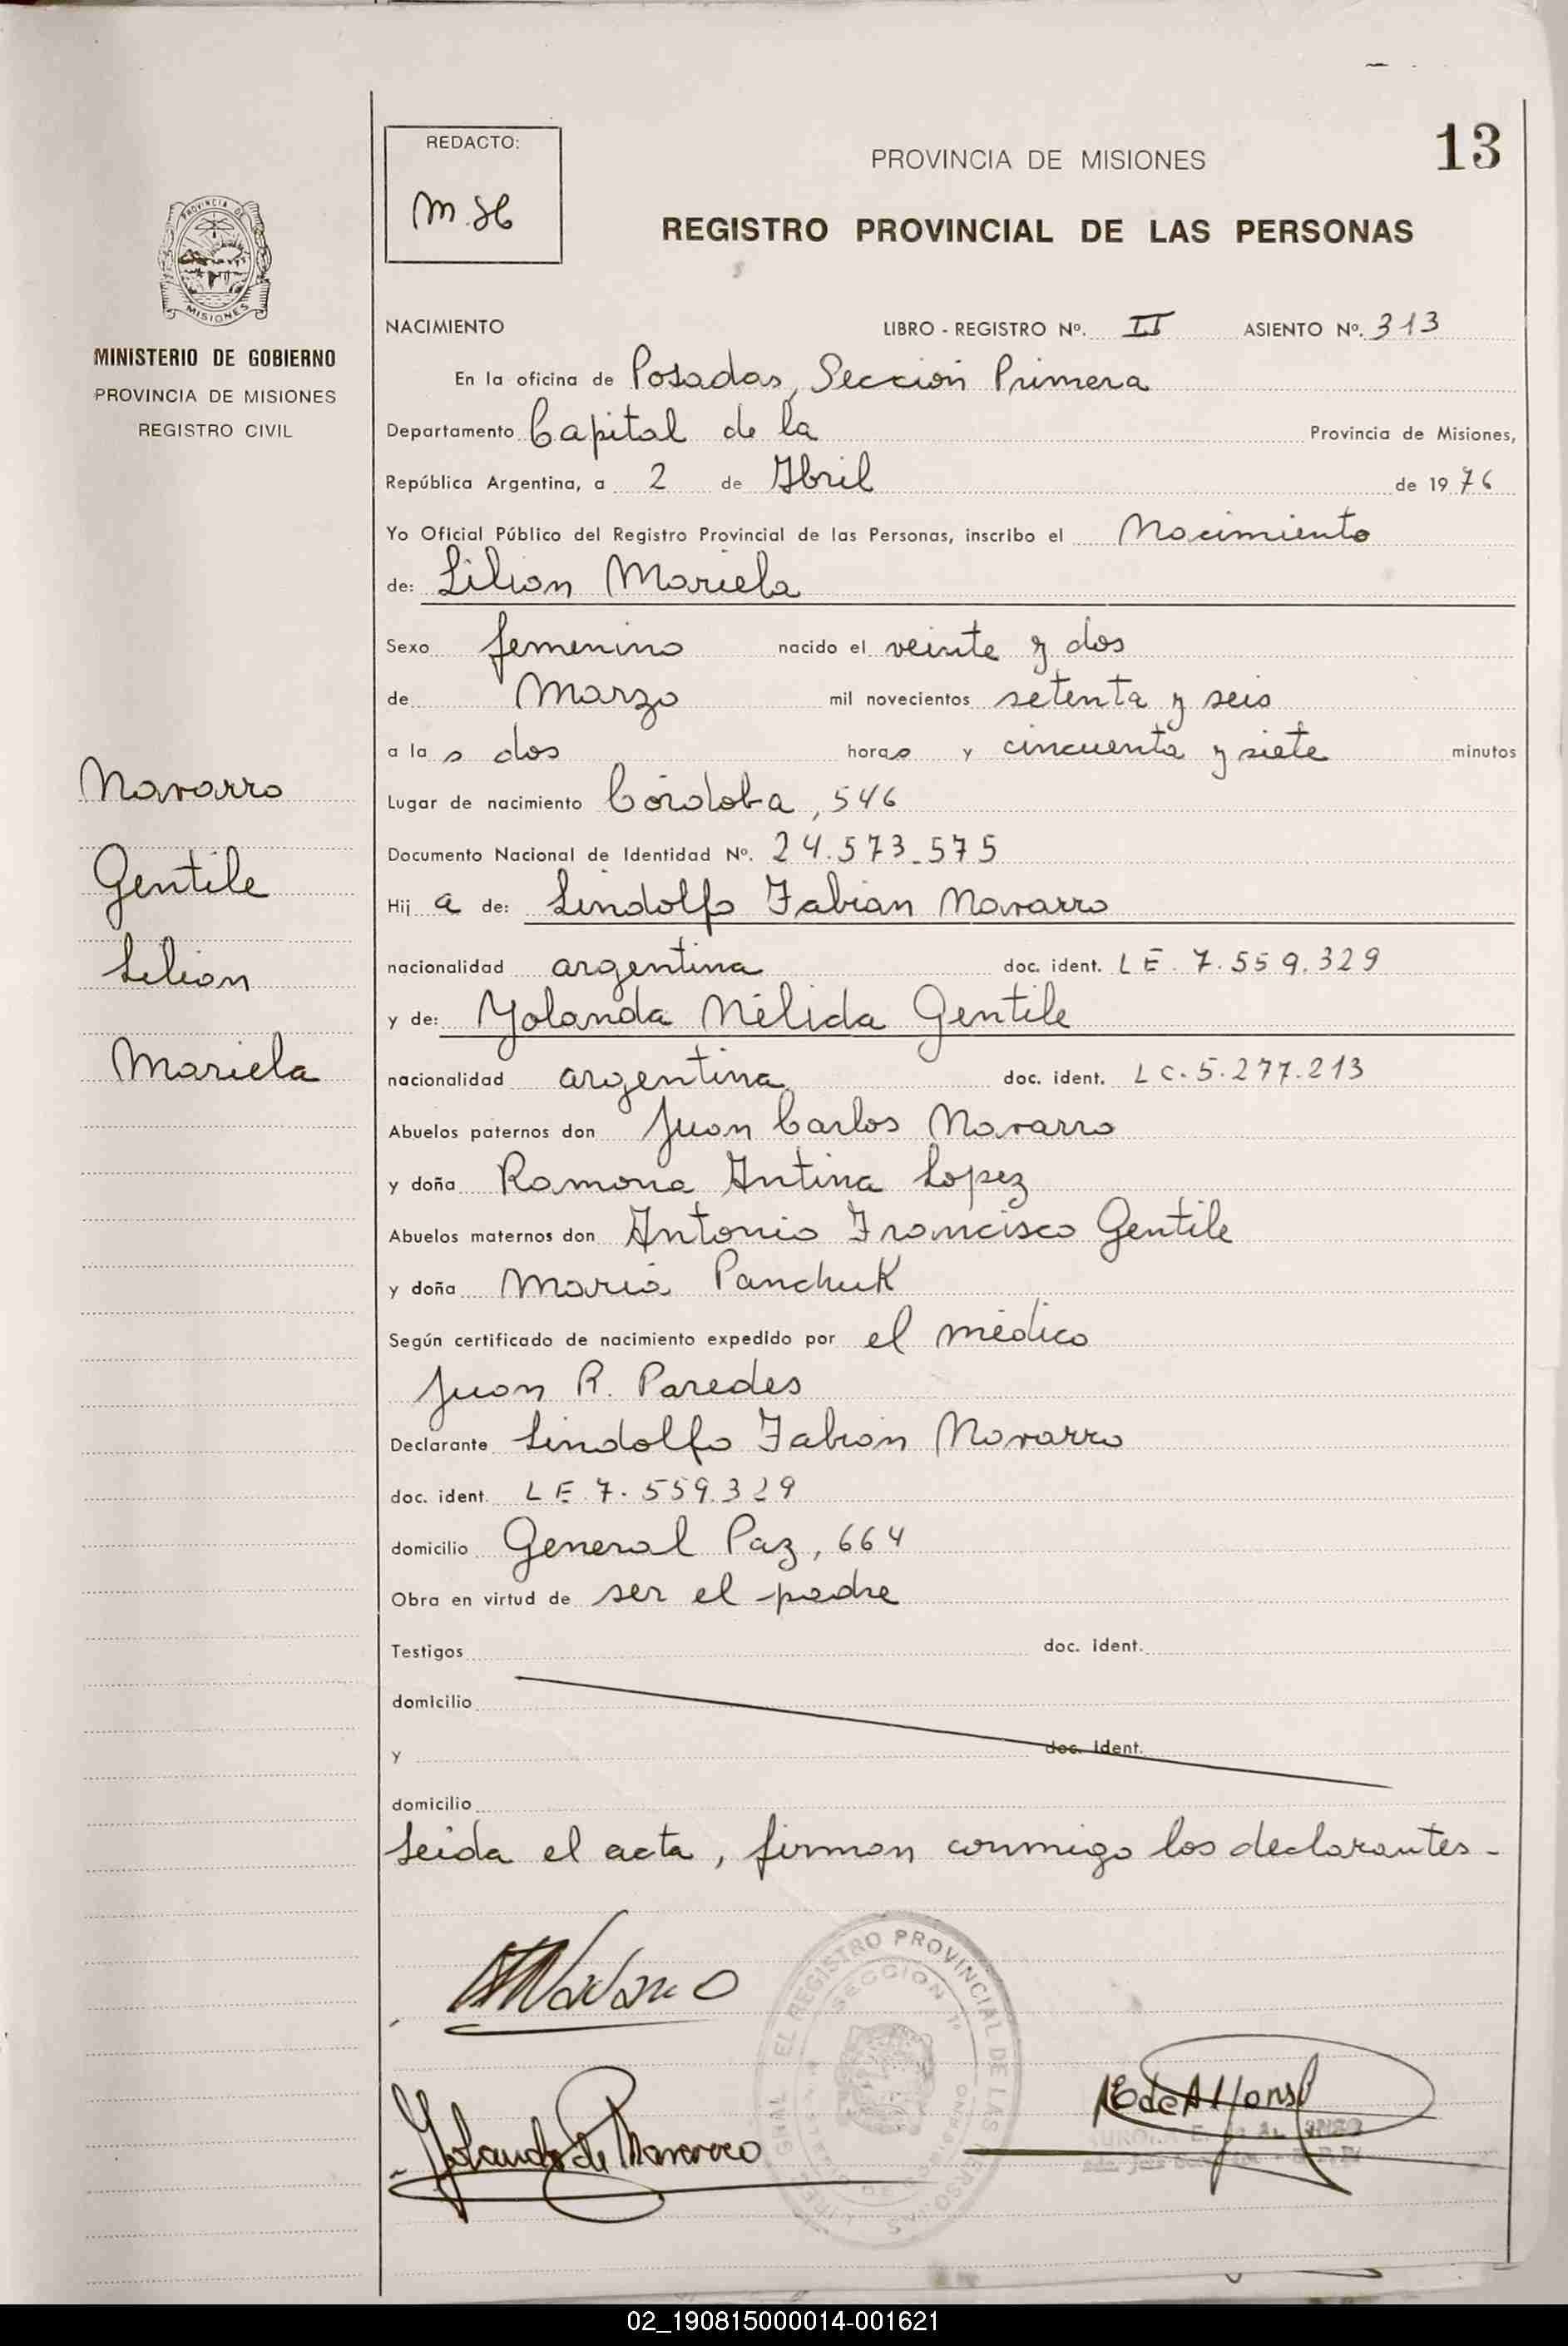 13
REDACTO:
M.H
PROVINCIA DE MISIONES
REGISTRO PROVINCIAL DE LAS PERSONAS
PROVINCIA DE
MISIONES
MINISTERIO DE GOBIERNO
PROVINCIA DE MISIONES
REGISTRO CIVIL
NACIMIENTO LIBRO - REGISTRO Nº. II ASIENTO Nº. 313
En la oficina de Posadas, Sección Primera
Departamento Capital de la Provincia de Misiones,
República Argentina, a 2 de Abril de 1976
Yo Oficial Público del Registro Provincial de las Personas, inscribo el Nacimiento
de: Lilian Mariela
Sexo femenino nacido el veinte y dos
de Marzo mil novecientos setenta y seis
a la s dos horas y cincuenta y siete minutos
Lugar de nacimiento Córdoba, 546
Documento Nacional de Identidad Nº. 24.573.575
Hij a de: Lindolfo Fabian Navarro
nacionalidad argentina doc. ident. LE. 7.559.329
y de: Yolanda Nélida Gentile
nacionalidad argentina doc. ident. LC. 5.277.213
Abuelos paternos don Juan Carlos Navarro
y doña Ramona Antina Lopez
Abuelos maternos don Antonio Francisco Gentile
y doña Maria Panchuk
Según certificado de nacimiento expedido por el médico
Juan R. Paredes
Declarante Lindolfo Fabian Navarro
doc. ident. LE. 7.559.329
domicilio General Paz, 664
Obra en virtud de ser el padre
Testigos doc. ident.
domicilio
y doc. ident.
domicilio
Leida el acta, firman conmigo los declarantes-
Navarro
Gentile
Lilian
Mariela
Navarro
Yolanda de Navarro
E de Alfonso
EL REGISTRO PROVINCIAL DE LAS PERSONAS
SECCION 1ª
02_190815000014-001621